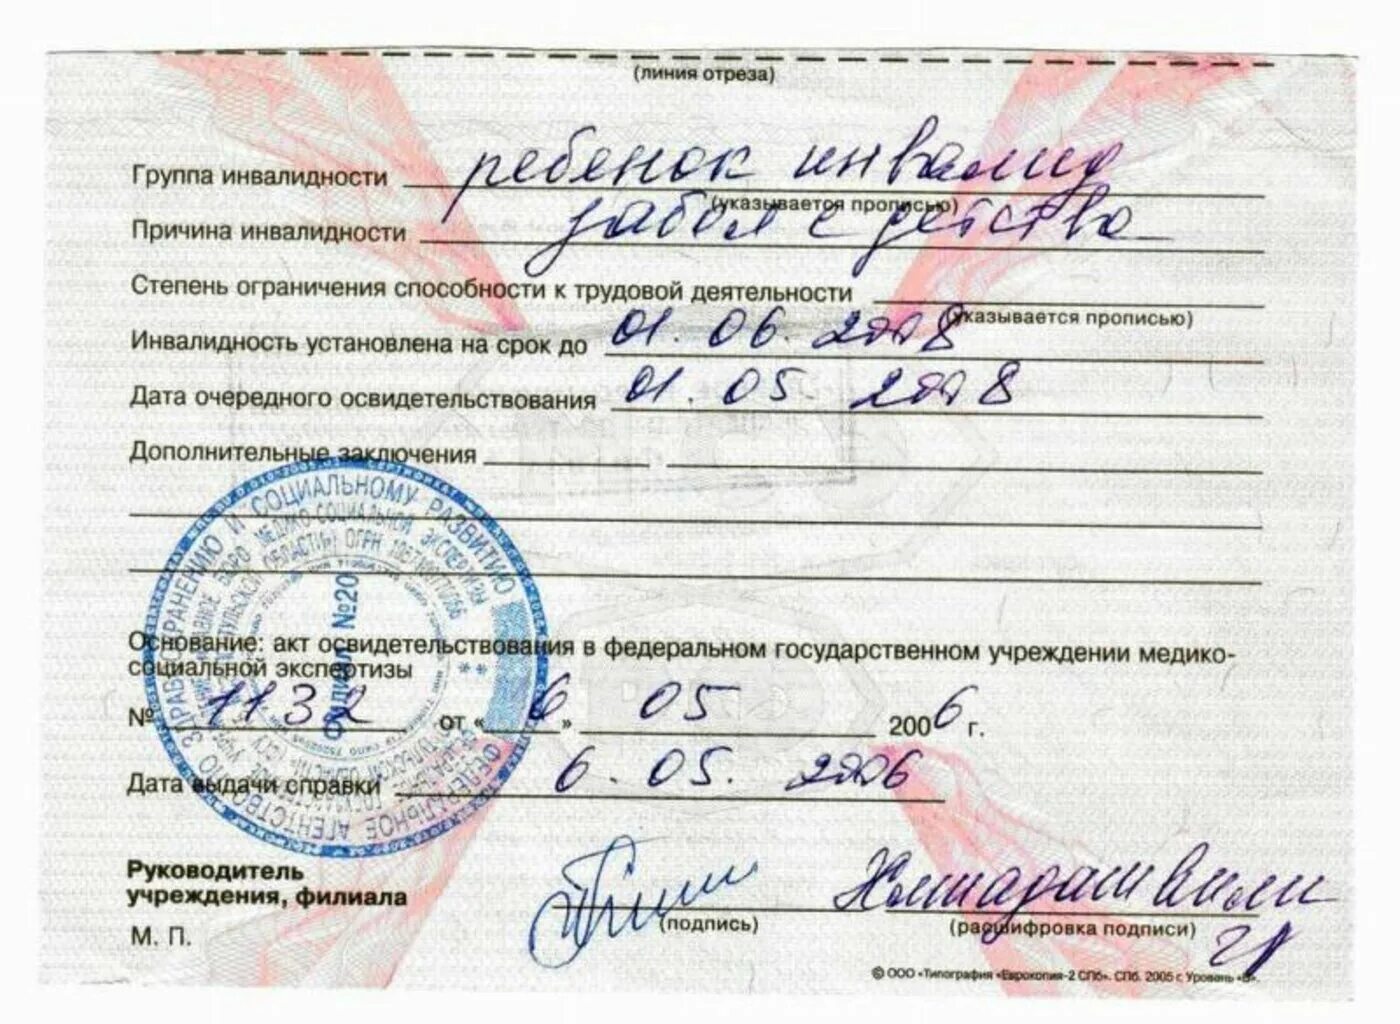 (линия отреза)
Группа инвалидности ребенок инвалид
(указывается прописью)
Причина инвалидности забол с детства
Степень ограничения способности к трудовой деятельности
(указывается прописью)
Инвалидность установлена на срок до 01.06.2008
Дата очередного освидетельствования 01.05.2008
Дополнительные заключения
Основание: акт освидетельствования в федеральном государственном учреждении медико-
социальной экспертизы
№ 1132 от «6» 05 2006 г.
Дата выдачи справки 6.05.2006
Руководитель
учреждения, филиала
(подпись)
(расшифровка подписи)
М. П.
© ООО «Типография «Еврокопия-2 СПб». СПб. 2005 г. Уровень «В».
ФЕДЕРАЛЬНОЕ АГЕНТСТВО ПО ЗДРАВООХРАНЕНИЮ И СОЦИАЛЬНОМУ РАЗВИТИЮ
БЮРО МЕДИКО-СОЦИАЛЬНОЙ ЭКСПЕРТИЗЫ
ТУЛЬСКОЙ ОБЛАСТИ ОГРН
Филиал №20